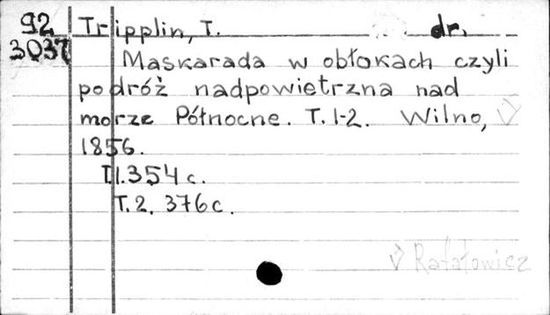 92
3037
Tripplin, T. dr.
Maskarada w obłokach czyli
podróż nadpowietrzna nad
morze Północne. T. 1-2. Wilno,
1856.
T.1. 354 c.
T. 2. 376 c.
Rafałowicz